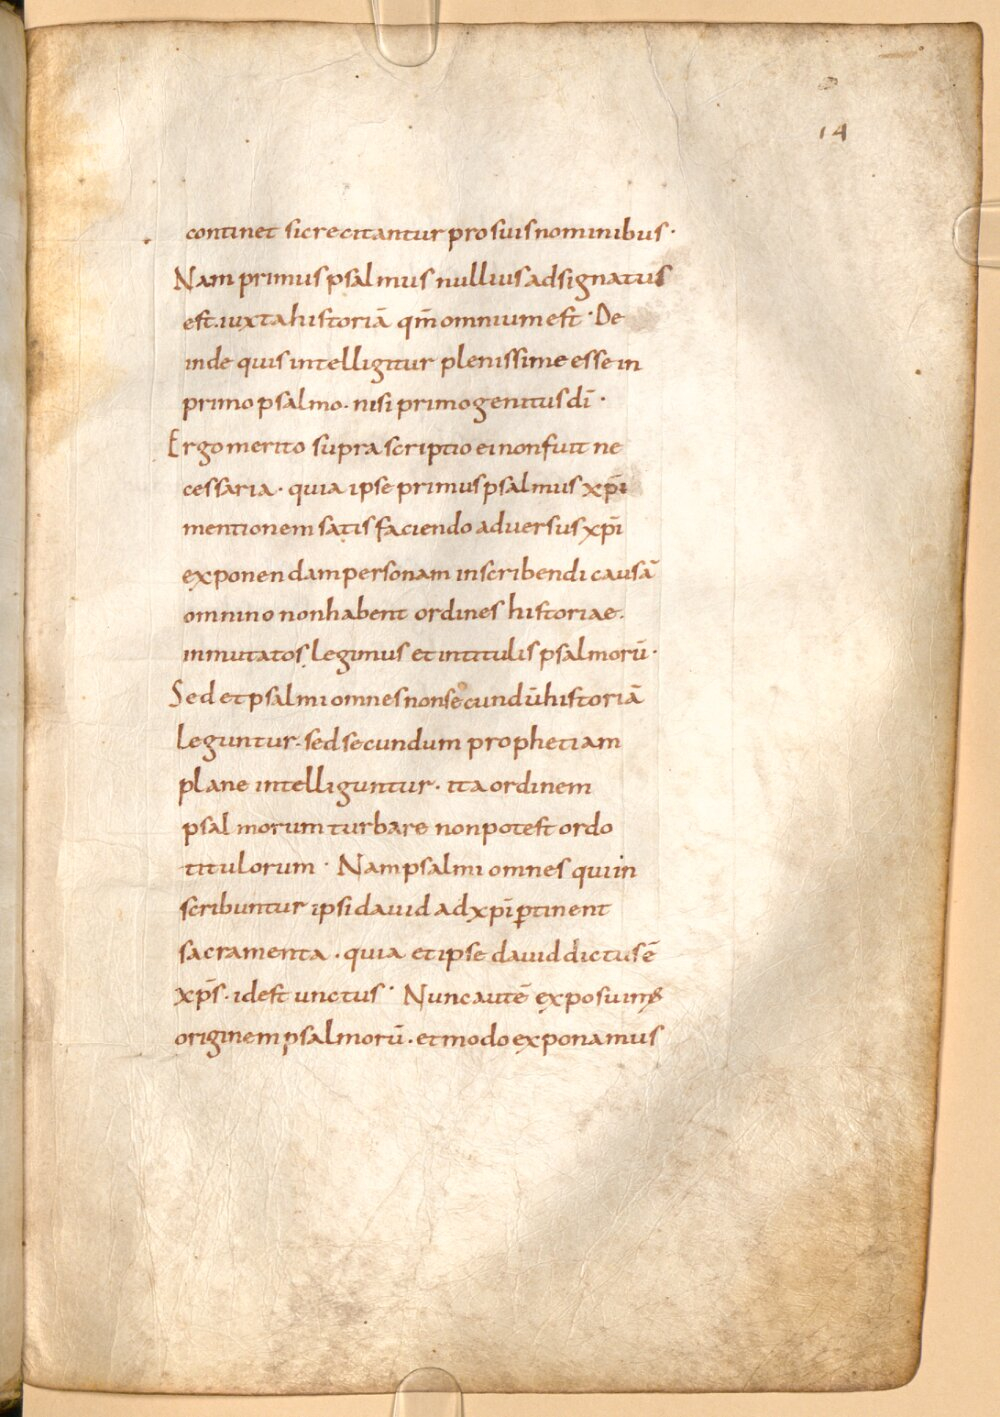 14
continet sic recitantur pro suis nominibus ·
Nam primus psalmus nullius adsignatus
est. iuxta historiā qm̄ omnium est · De
inde quis intelligitur plenissime esse in
primo psalmo · nisi primogenitus dī ·
Ergo merito supra scriptio ei non fuit ne
cessaria · quia ipse primus psalmus xp̄i
mentionem satis faciendo adversus xp̄i
exponendam personam inscribendi causā
omnino non habent ordines historiae.
inmutatos legimus et in titulis psalmorū ·
Sed et psalmi omnes non secundū historiā
leguntur · sed secundum prophetiam
plane intelliguntur · ita ordinem
psalmorum turbare non potest ordo
titulorum · Nam psalmi omnes qui in
scribuntur ipsi dauid ad xp̄i ꝑtinent
sacramenta · quia et ipse dauid dictus ē
xp̄s · id est unctus · Nunc autē exposuimꝰ
originem psalmorū · et modo exponamus